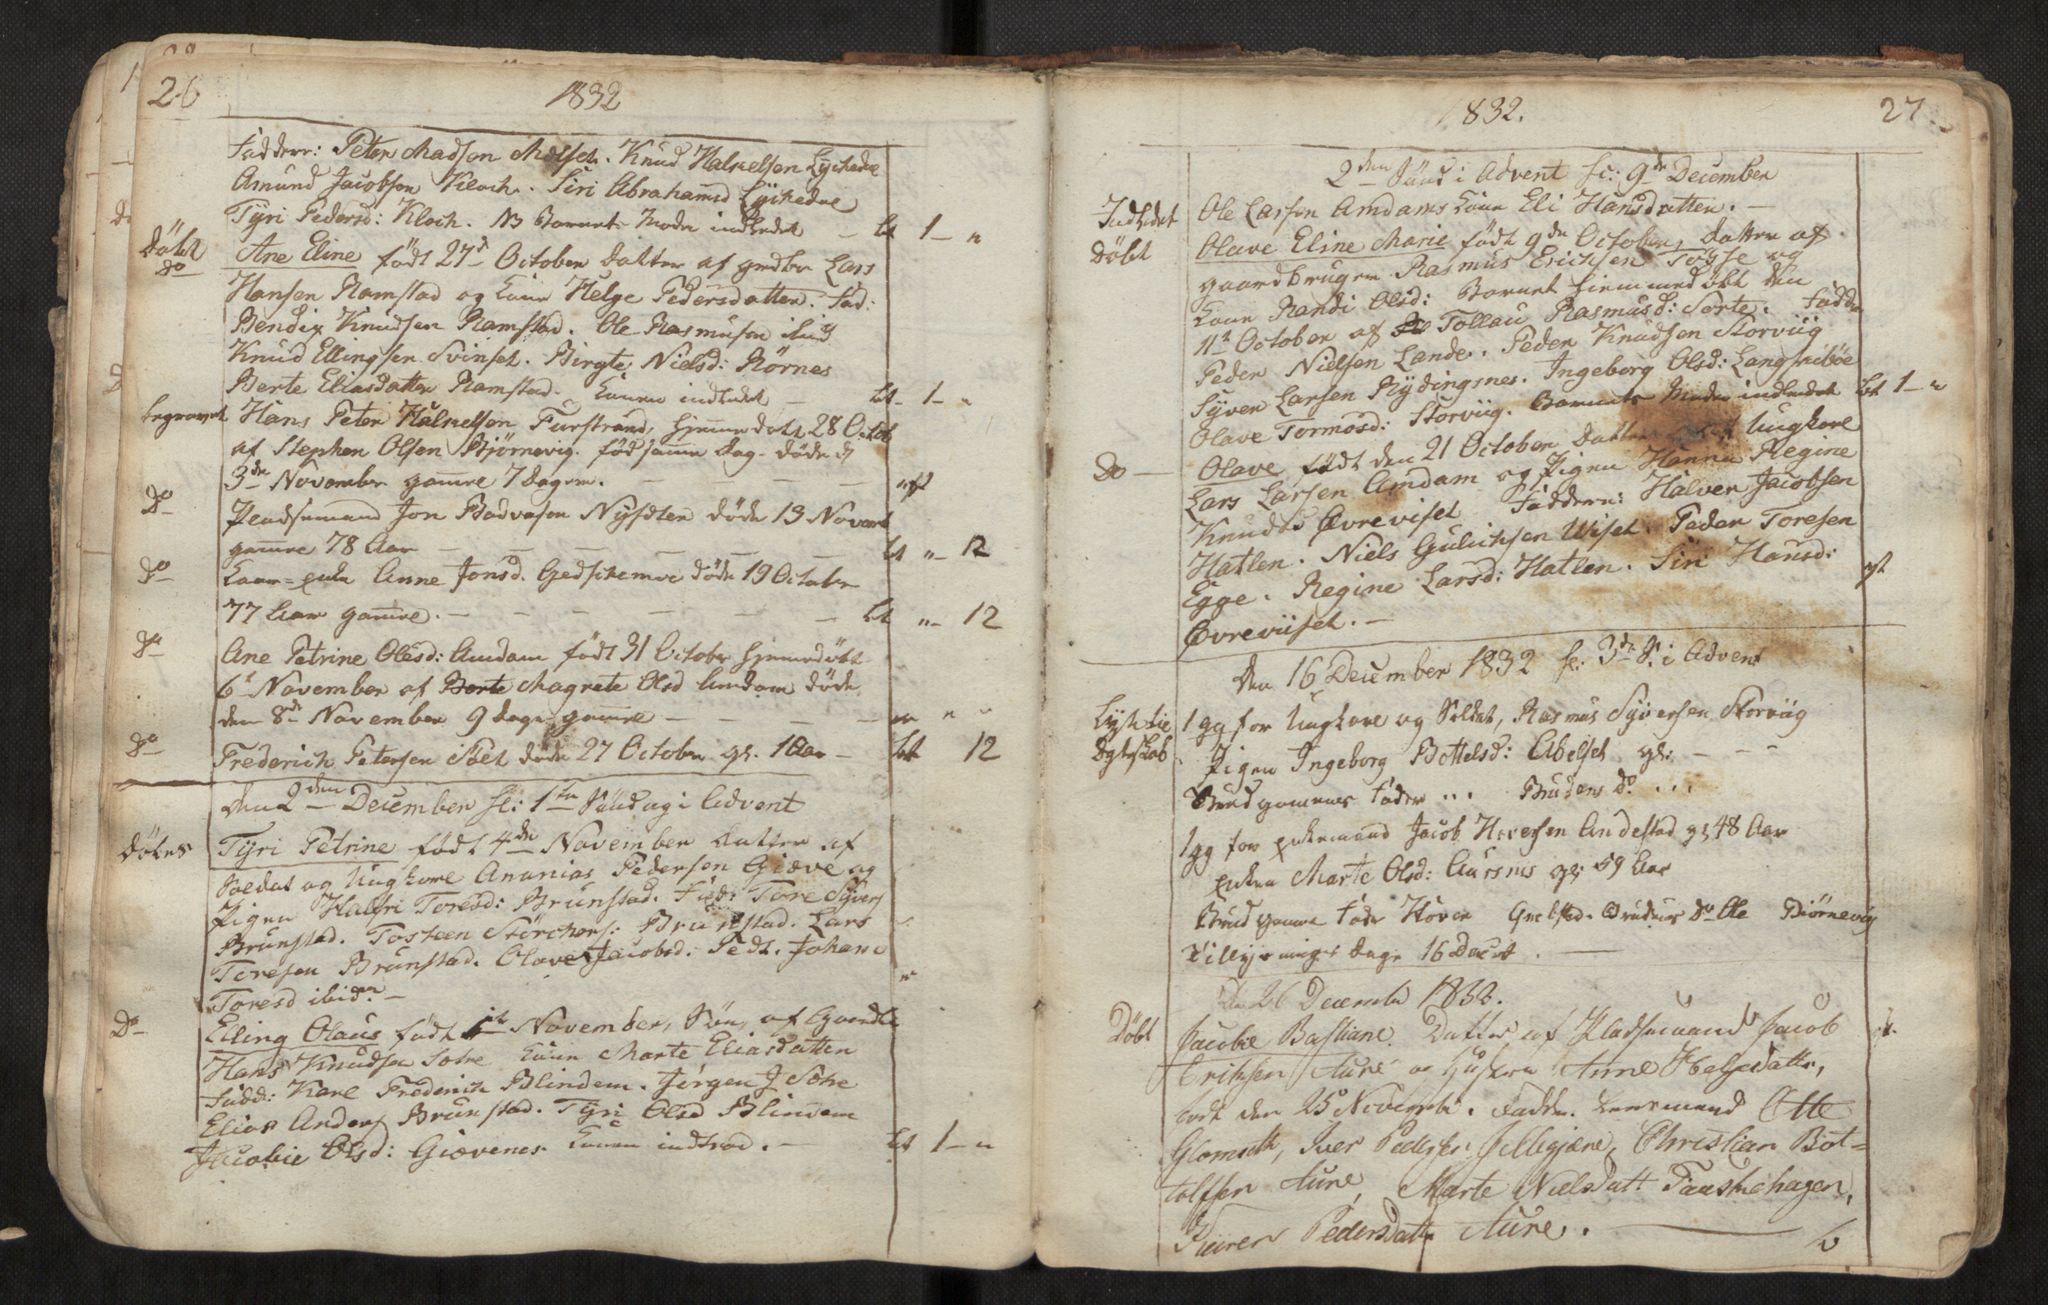 26
1832
Faddere: Peter Madsen Melset. Knud Halvelsen Lÿckedve
Amund Jacobsen Kloch. Siri Abrahamsd Lÿckedve
Tÿri Pedersd: Kloch. NB Barnets Moder indledet - bt 1 - "
Döbt
do
Ane Eline født 27d October Datter af grdbr Lars
Hansen Ramstad og Kone Helge Pedersdatter. Fad:
Bendix Knudsen Ramstad. Ole Rasmusen ibid
Knud Ellingsen Svinset. Birgte Nielsd: Rørnes
Berte Eliasdatter Ramstad. Konen indledet - bt - 1 - "
begravet Hans Peter Halvelsen Furstrand, hjemedøbt 28 Octob
af Stephen Olsen Bjørnevig. fød samme Dag - døde d
3de November gamle 7 Dage. - - - -
do Pladsemand Jon Badvasen Nÿsæter døde 13 Novembr
gamle 78 Aar - - - - - - bt " - 12
do Kaar-enke Anne Jonsd. Gedschemoe døde 19 October
77 Aar gamle. - - - - - - bt " - 12
do Ane Petrine Olesd: Amdam født 31 October hjemedøbt
6t November af Berte Magrete Olsd Amdam døde
den 8de November 9 dage gamle - - - - " "
do Frederich Petersen Sæet døde 27 October gl. 1 Aar - bt 12
Den 2den December fe: 1ste Søndag i Advent
Döbes Tÿri Petrine født 4de November Datter af
Soldat og Ungkarl Ananias Pedersen Giæve og
Pigen Halfri Toresd: Brunstad. Fad: Tore Sÿvers
Brunstad. Tosteen Störchers: Brunstad. Lars
Toresen Brunstad. Olave Jacobsd: Pedt. Johane
Toresd ibidm -
Do Elling Olaus født 1t November, Søn af Gaardbr
Hans Knudsen Sohe Kone Marte Eliasdatter
Fadd: Karl Frederich Blindem. Jørgen J Sohe
Elias Anders Brunstad. Tÿri Olsd Blindem
Jacobie Olsd: Giævenes. Konen indledet. - bt 1 - "
1832.
27
2den Sönd i Advent fe: 9de December
Indledet Ole Larsen Amdams Kone Eli Hansdatter. -
Döbt Olave Eline Marie født 9de October, Datter af
gaardbruger Rasmus Erichsen Tosse og
Kone Randi Olsd: Barnet hiemmedøbt den
11te October af Tollau Rasmusd: Sorte. Fadder
Peder Nielsen Lande. Peder Knudsen Storviig
Sÿver Larsen Rÿdingsnes. Ingeborg Olsd: Langsæböe
Olave Tormosd: Storviig. Barnets Moder indledet bt 1 - "
Do - Olave født den 21 October Datter af Ungkarl
Lars Larsen Amdam og Pigen Hanna Regine
Knudsd Øvreviset Faddere: Halver Jacobsen
Hatlen. Niels Gulichsen Wiset. Peder Toresen
Egge. Regine Larsd: Hatlen. Siri Hansd:
Øvreviiset. -
Den 16 December 1832 fe: 3de S: i Advent
1 gg for Ungkarl og Soldat, Rasmus Sÿversen Storviig
Pigen Ingeborg Bottelsd: Abelset gl: - - -
Brudgommens Fader ... Brudens do ...
1 gg for Enkemand Jacob Iversen Andestad gl 48 Aar
Enken Marte Olsd: Aursnes gl: 59 Aar
Brudgoms Fader Iver Grebstad. Brudens do Ole Biørnevig
Tillysnings Dage 16 Decbr. -
Den 26 Decembr 1832.
Döbt Jacobie Bastiane. Datter af Pladsemand Jacob
Eriksen Aure og Hustru Anne Helgedatter,
født den 25 Novembr. Fadder. Lensmand Otte
Glomseth, Iver Pedersen Jelligjære, Christian Bot-
tolfsen Aure, Marte Nielsdatt Fauskehagen,
Pedersdatter Aure. -